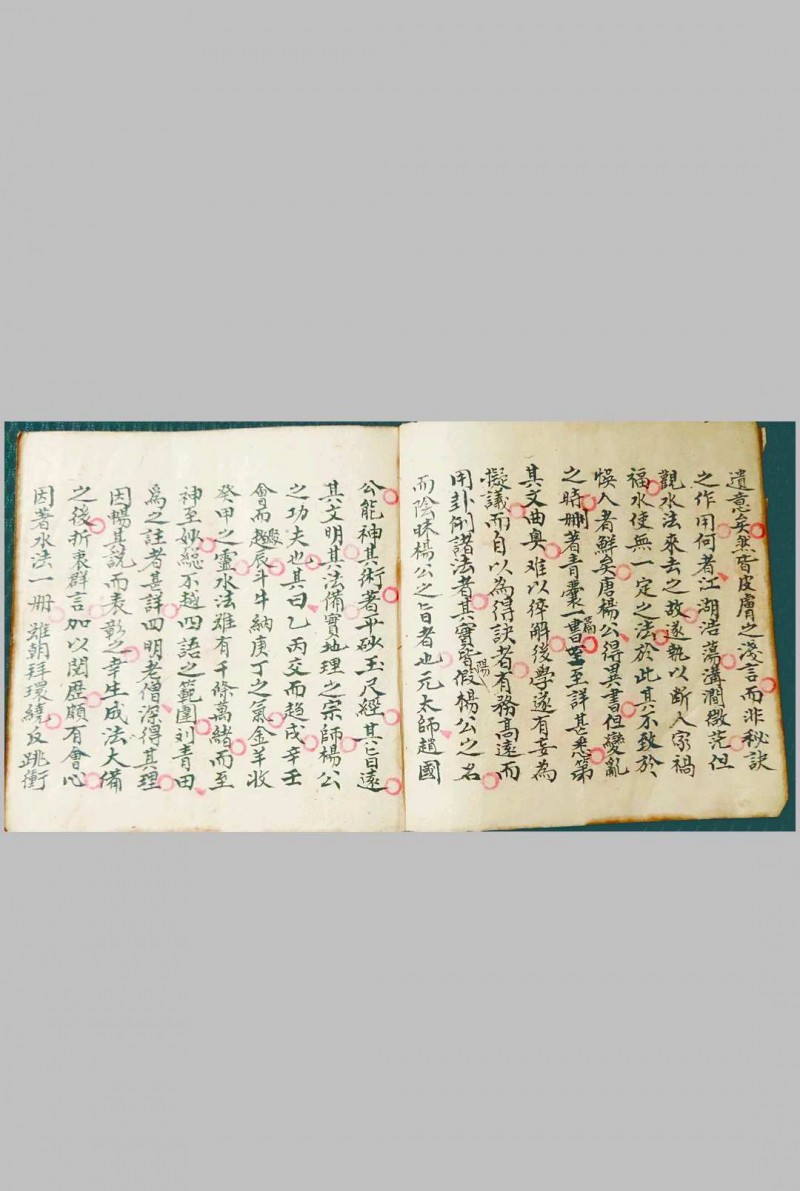 遺意矣然皆皮膚之淺言而非秘訣
之作用何者江湖浩蕩溝澗微茫但
觀水法來去之故遂執以斷人家禍
福水使無一定之法於此其不致於
悞人者鮮矣唐楊公得異書但變亂
之時删著青囊一書至詳甚悉第
篇
其文曲奧难以猝解後學遂有妄為
擬議而自以為得訣者有務高遠而
用卦例諸法者其實皆假楊公之名
陽
而陰昧楊公之旨者也元太師趙國
公能神其術著平砂玉尺經其旨遠
其文明其法備實地理之宗師楊公
之功夫也其曰乙丙交而趨戌辛壬
會而趨辰斗牛納庚丁之氣金羊收
聚
癸甲之靈水法雖有千條萬緒而至
神至妙總不越四語之範圍刘青田
為之註者甚詳四明老僧深得其理
因暢其説而表彰之幸生成法大備
之後折衷群言加以閱歷頗有會心
因著水法一冊雖朝拜環繞反跳衝